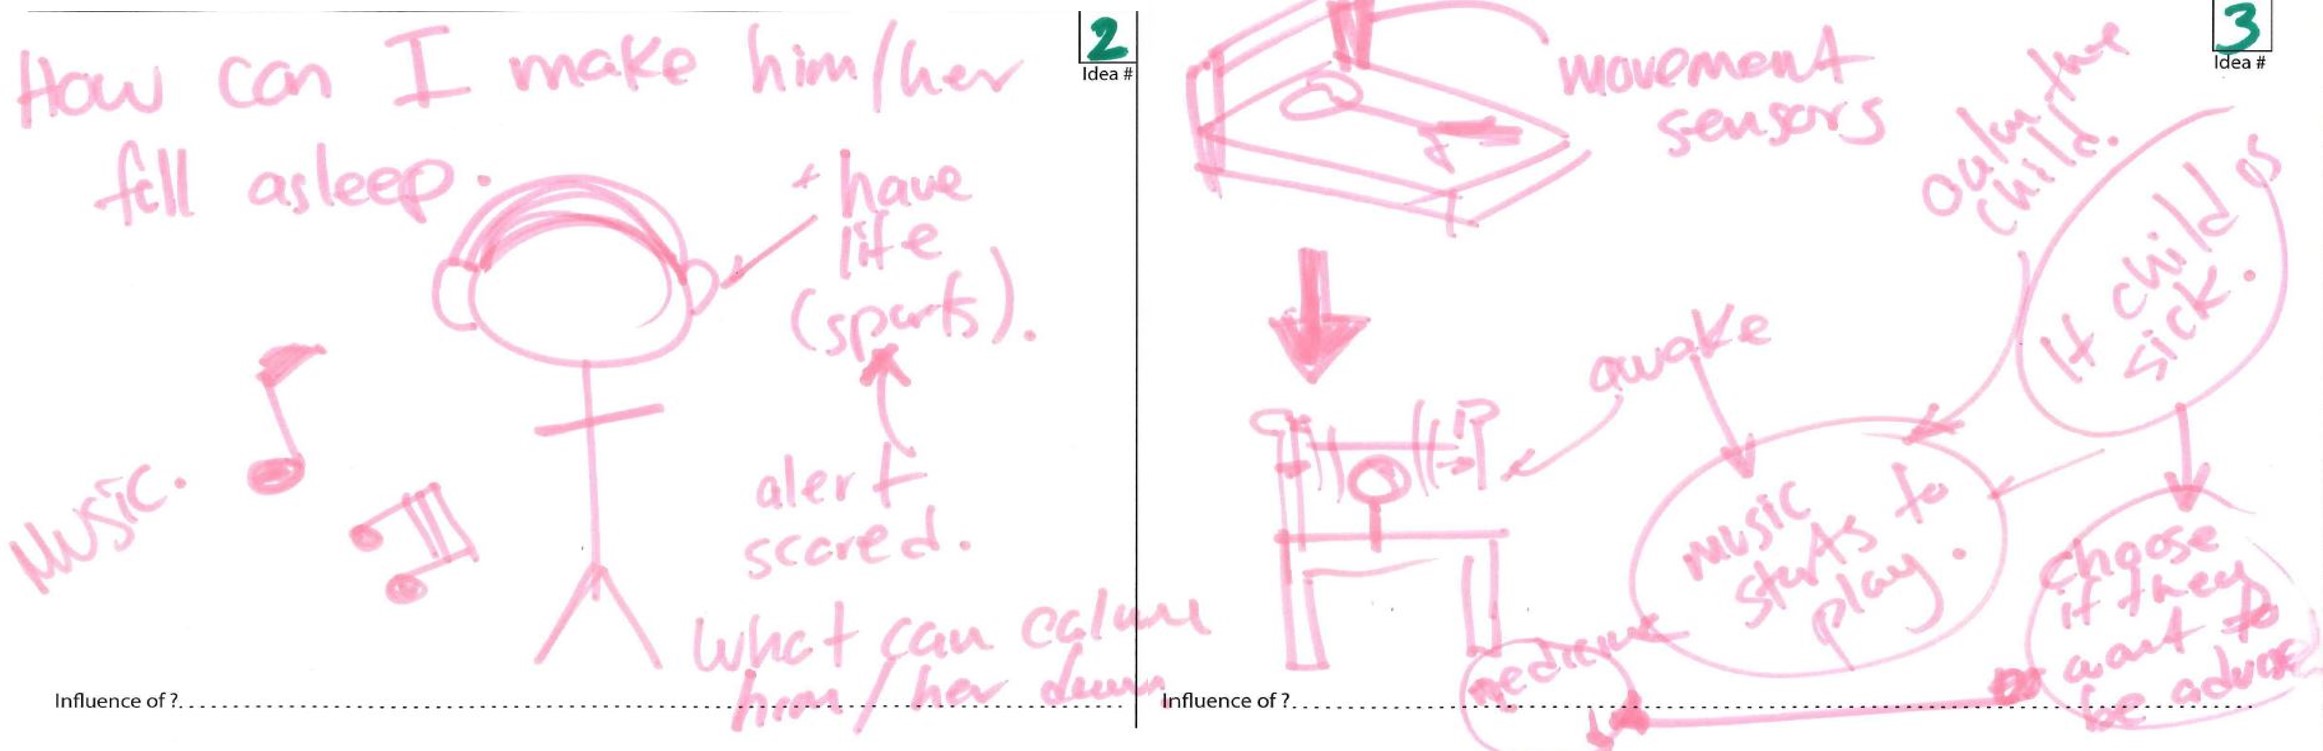 2
Idea #
How can I make him/her
fall asleep.
+ have
life
(sports).
alert
scared.
Music.
What can calm
him/her down
Influence of ?
3
Idea #
movement
sensors
calm the
child.
If child is
sick.
awake
music
starts to
play.
choose
if they
want to
be
medicine
Influence of ?